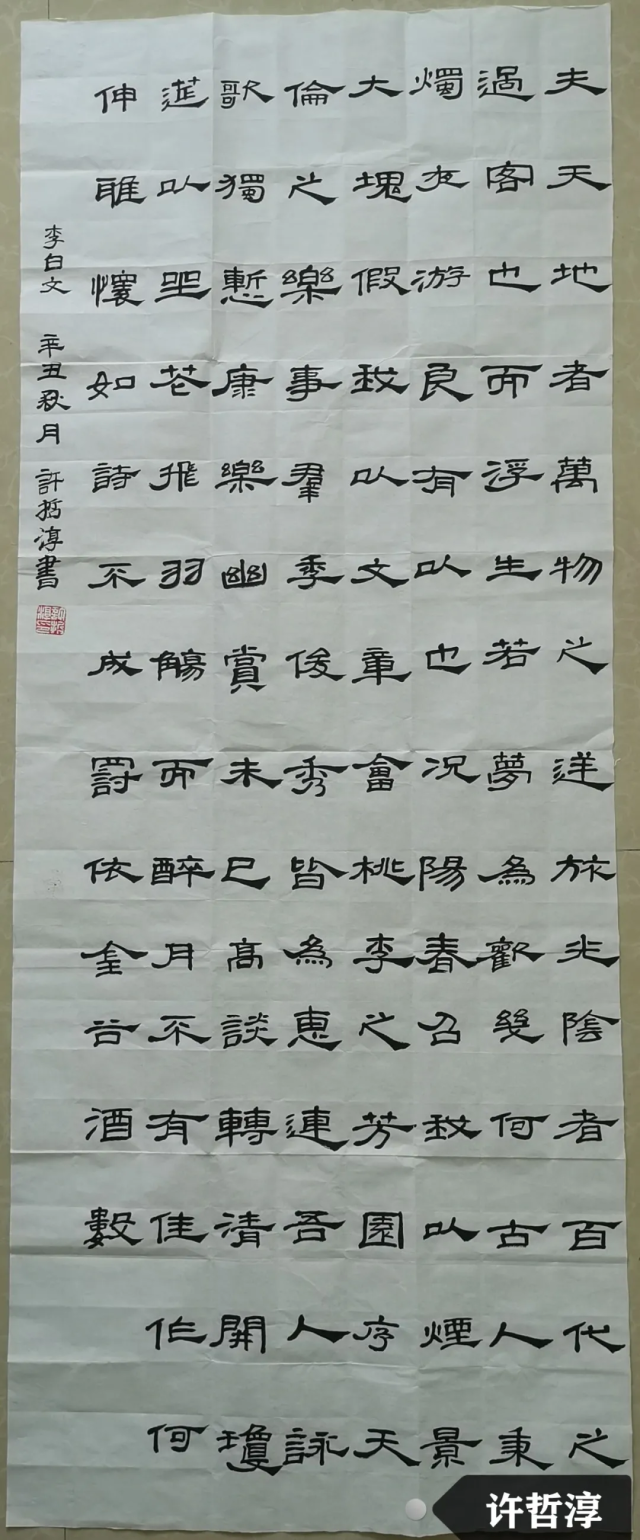 夫天地者萬物之逆旅光陰者百代之
過客也而浮生若夢為歡幾何古人秉
燭夜游良有以也況陽春召我以煙景
大塊假我以文章會桃李之芳園序天
倫之樂事羣季俊秀皆為惠連吾人詠
歌獨慙康樂幽賞未已高談轉清開瓊
筵以坐花飛羽觴而醉月不有佳作何
伸雅懷如詩不成罰依金谷酒數
李白文 辛丑秋月 許哲淳書
许哲淳